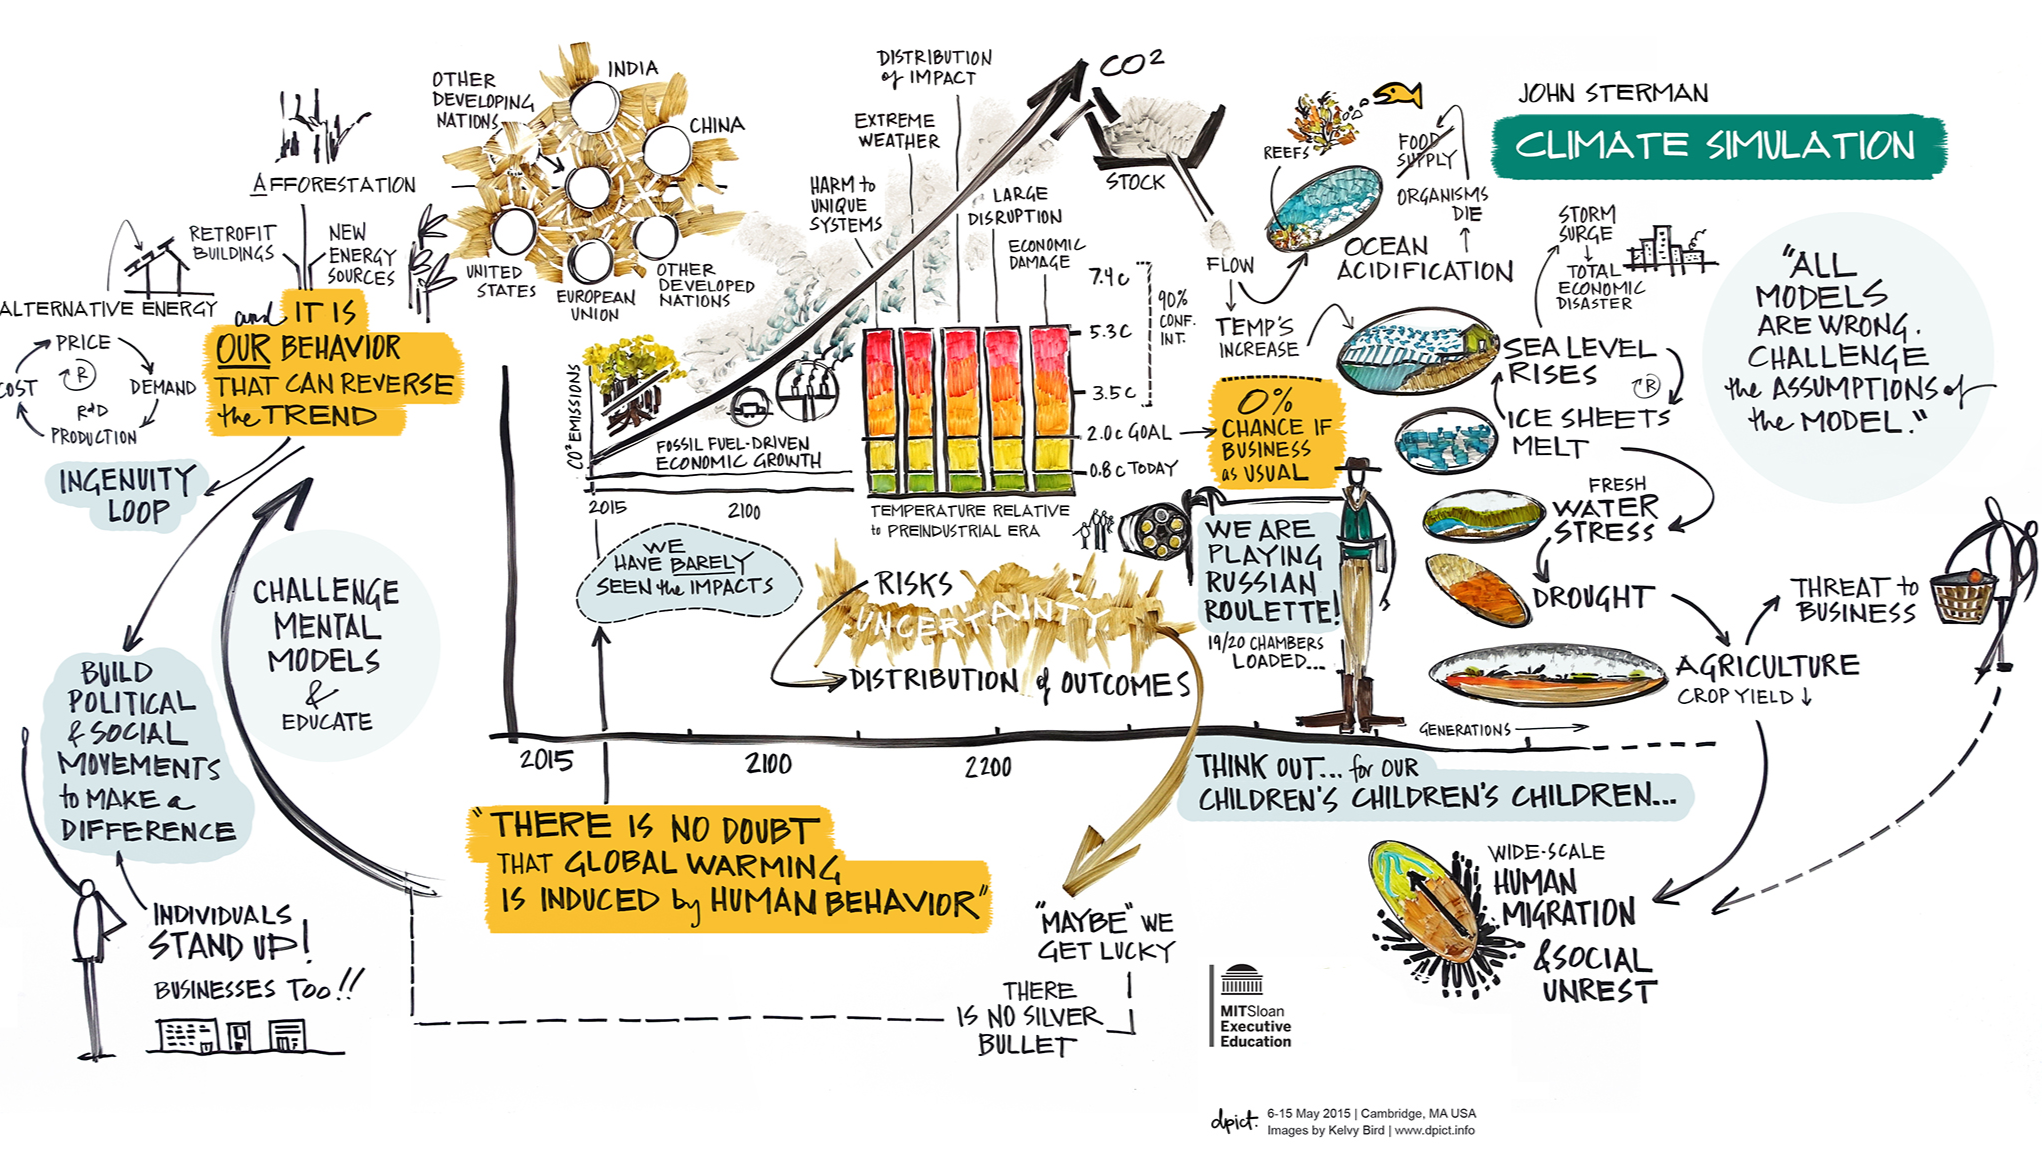 JOHN STERMAN
CLIMATE SIMULATION
"ALL
MODELS
ARE WRONG.
CHALLENGE
the ASSUMPTIONS of
the MODEL."
AFFORESTATION
RETROFIT
BUILDINGS
NEW
ENERGY
SOURCES
ALTERNATIVE ENERGY
PRICE
DEMAND
R&D
PRODUCTION
COST
R
and IT IS
OUR BEHAVIOR
THAT CAN REVERSE
the TREND
INGENUITY
LOOP
CHALLENGE
MENTAL
MODELS
&
EDUCATE
BUILD
POLITICAL
& SOCIAL
MOVEMENTS
to MAKE a
DIFFERENCE
INDIVIDUALS
STAND UP!
BUSINESSES TOO!!
OTHER
DEVELOPING
NATIONS
INDIA
CHINA
UNITED
STATES
EUROPEAN
UNION
OTHER
DEVELOPED
NATIONS
CO2 EMISSIONS
FOSSIL FUEL-DRIVEN
ECONOMIC GROWTH
2015
2100
WE
HAVE BARELY
SEEN the IMPACTS
HARM to
UNIQUE
SYSTEMS
EXTREME
WEATHER
DISTRIBUTION
of IMPACT
LARGE
DISRUPTION
ECONOMIC
DAMAGE
7.4 C
5.3 C
3.5 C
2.0 C GOAL
0.8 C TODAY
90%
CONF.
INT.
TEMPERATURE RELATIVE
to PREINDUSTRIAL ERA
CO2
STOCK
FLOW
TEMP'S
INCREASE
0%
CHANCE IF
BUSINESS
as USUAL
WE ARE
PLAYING
RUSSIAN
ROULETTE!
19/20 CHAMBERS
LOADED...
RISKS
UNCERTAINTY
DISTRIBUTION of OUTCOMES
REEFS
FOOD
SUPPLY
ORGANISMS
DIE
OCEAN
ACIDIFICATION
STORM
SURGE
TOTAL
ECONOMIC
DISASTER
SEA LEVEL
RISES
R
ICE SHEETS
MELT
FRESH
WATER
STRESS
DROUGHT
AGRICULTURE
CROP YIELD ↓
THREAT to
BUSINESS
GENERATIONS
2015
2100
2200
THINK OUT... for OUR
CHILDREN'S CHILDREN'S CHILDREN...
"THERE IS NO DOUBT
THAT GLOBAL WARMING
IS INDUCED by HUMAN BEHAVIOR"
"MAYBE" WE
GET LUCKY
THERE
IS NO SILVER
BULLET
WIDE-SCALE
HUMAN
MIGRATION
& SOCIAL
UNREST
MITSloan
Executive
Education
dpict.
6-15 May 2015 | Cambridge, MA USA
Images by Kelvy Bird | www.dpict.info